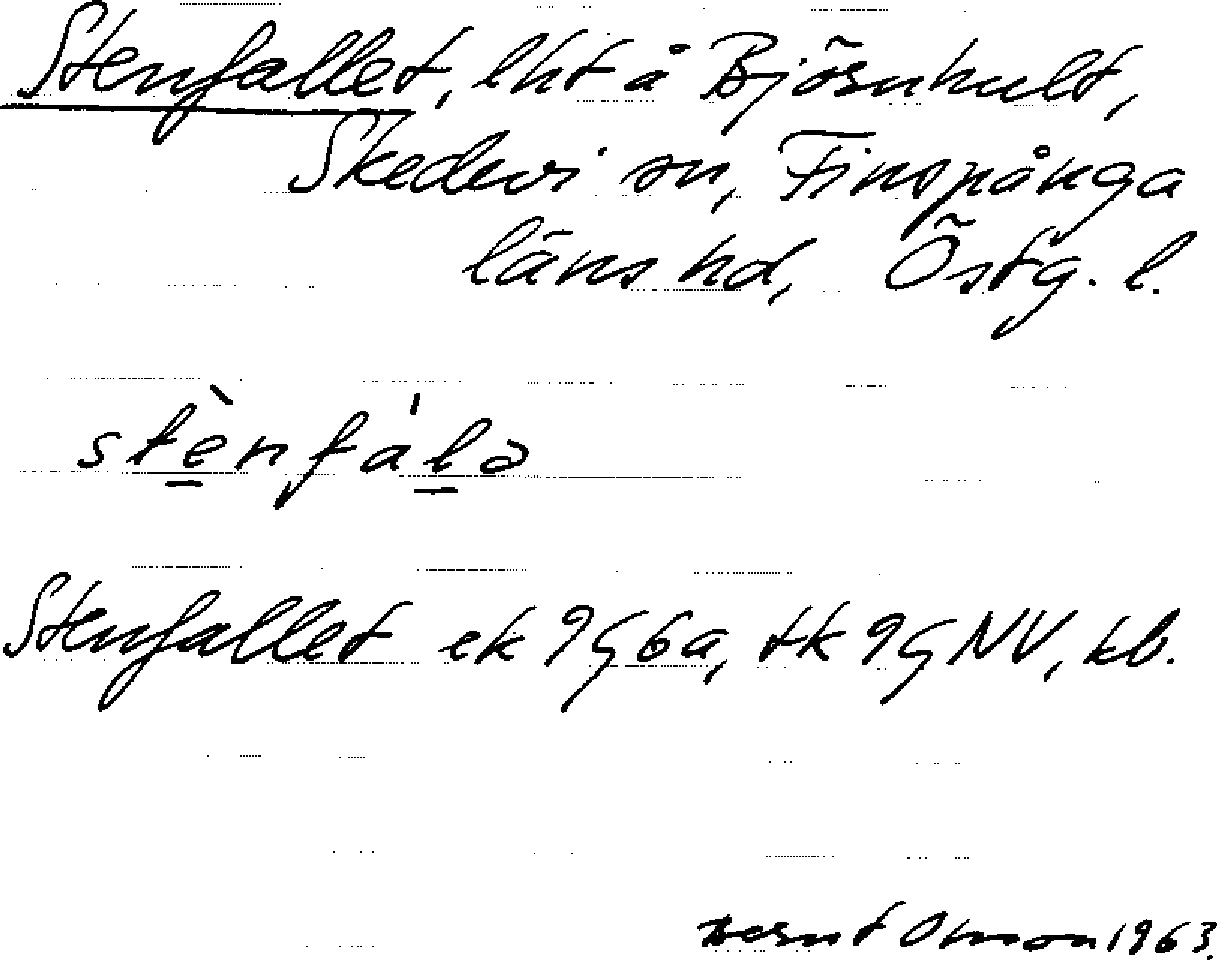 Stenfallet, lht å Björnhult,
Skedevi sn, Finspånga
läns hd, Östg. l.
stènfálə
Stenfallet ek 9G6a, tk 9GNV, kb.
Bernt Olsson 1963.